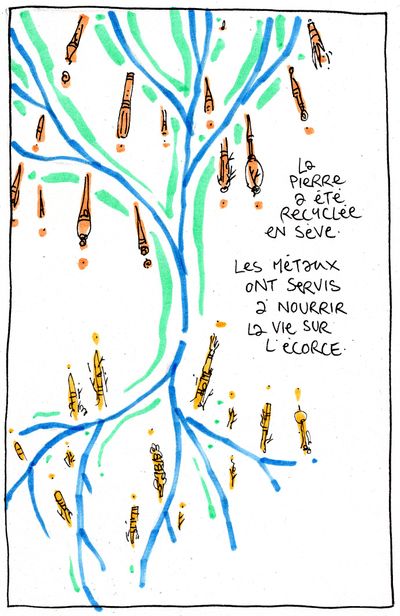 La
PIERRE
a été
RECYCLÉE
EN SÈVE.
LES MÉTAUX
ONT SERVIS
à NOURRIR
LA VIE SUR
L'ÉCORCE.